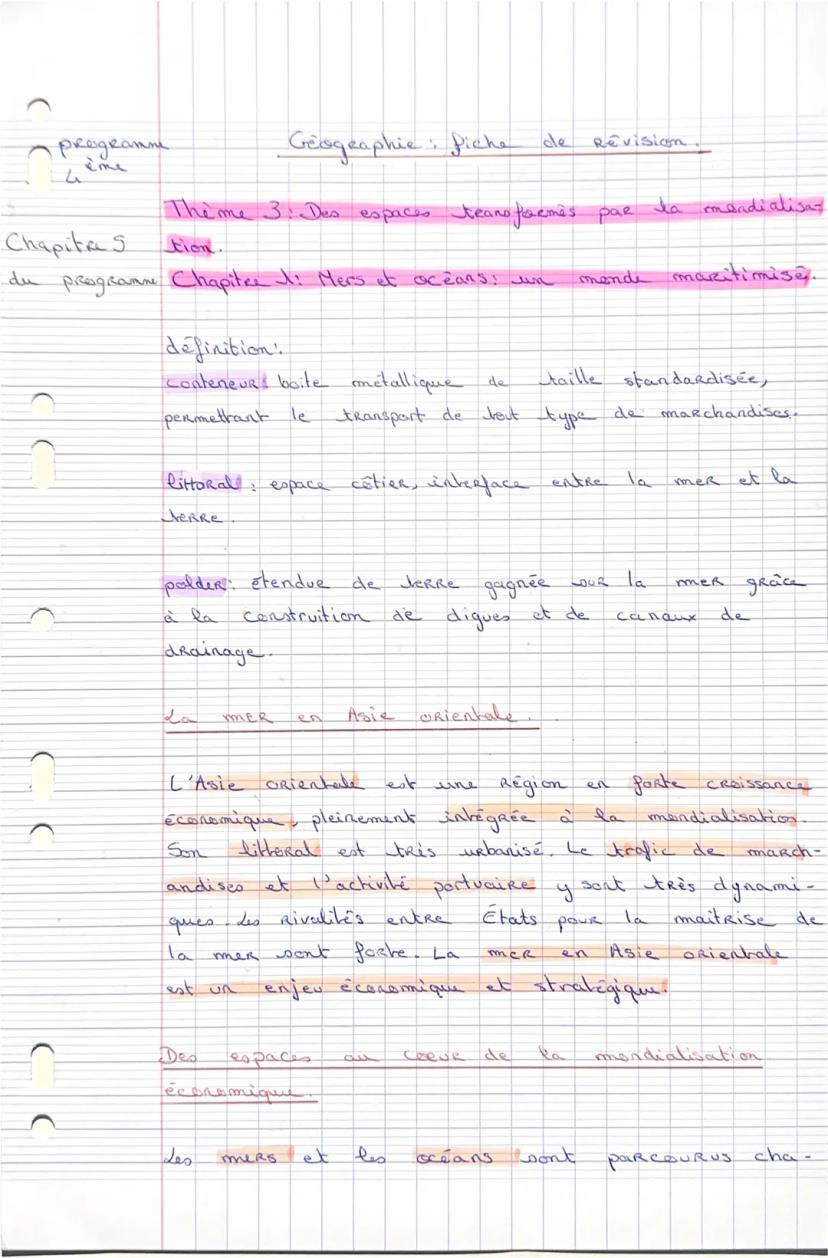 programme
4 ème
Géographie : fiche de révision.
Thème 3 : Des espaces transformés par la mondialisa-
tion.
Chapitre 5
du programme
Chapitre 1 : Mers et océans : un monde maritimisé.
définition :
conteneur : boite métallique de taille standardisée,
permettant le transport de tout type de marchandises.
littoral : espace côtier, interface entre la mer et la
terre.
polder : étendue de terre gagnée sur la mer grâce
à la construition de digues et de canaux de
drainage.
La mer en Asie orientale.
L'Asie orientale est une région en forte croissance
économique, pleinement intégrée à la mondialisation.
Son littoral est très urbanisé. Le trafic de march-
andises et l'activité portuaire y sont très dynami-
ques. Les rivalités entre États pour la maitrise de
la mer sont forte. La mer en Asie orientale
est un enjeu économique et stratégique.
Des espaces au coeur de la mondialisation
économique.
Les mers et les océans sont parcourus cha-